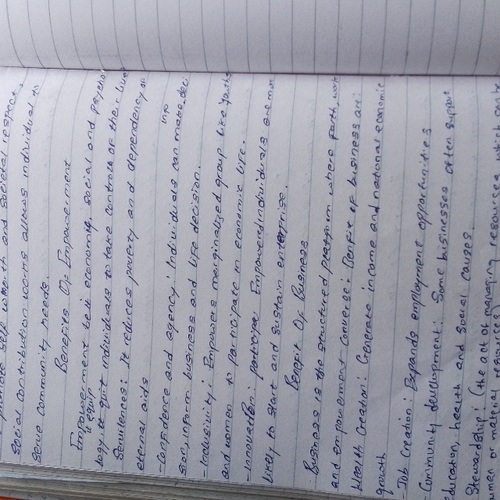 promote self worth and societal respect.
social contribution works allows individual to
serve community needs.
Benefits Of Empowerment
Empowerment be it economic, social and psycho
logy it equip individuals to take control of their lives
eternal aids
It reduces poverty and dependency on
info
- Confidence and agency: Individuals can make deci
sion, inform business and life decision.
- Inclusivity: Empowers marginalised group like youths
and women to participate in economic life.
- Innovation: participate Empowered individuals are more
likely to start and sustain enterprise.
Benefit Of Business
Business is the structured platform where faith, work
and empowerment converse: Benefit of business are:
Wealth Creation: Generate income and national economic
growth
Job Creation: Expands employment opportunities
Community development: Some businesses often support
education, health and social causes
Stewardship: (the act of managing resources which
men or material resources)